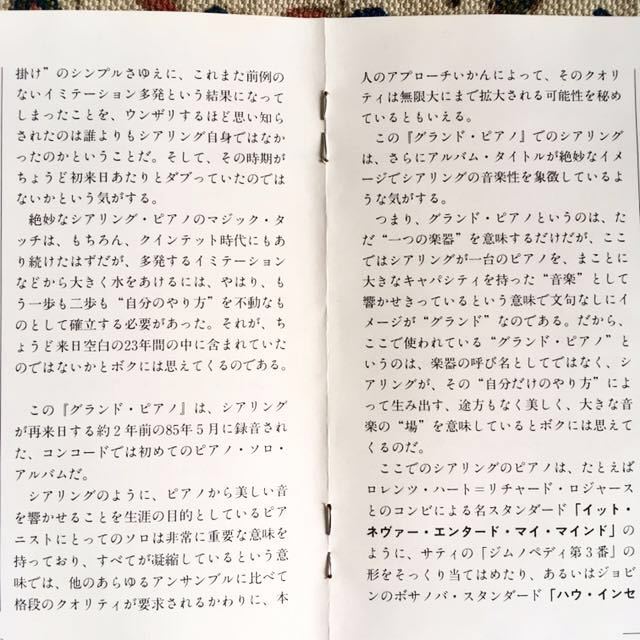 掛け”のシンプルさゆえに、これまた前例の
ないイミテーション多発という結果になって
しまったことを、ウンザリするほど思い知ら
されたのは誰よりもシアリング自身ではなか
ったのかということだ。そして、その時期が
ちょうど初来日あたりとダブっていたのでは
ないかという気がする。
絶妙なシアリング・ピアノのマジック・タ
ッチは、もちろん、クインテット時代にもあ
り続けたはずだが、多発するイミテーション
などから大きく水をあけるには、やはり、も
う一歩も二歩も“自分のやり方”を不動なも
のとして確立する必要があった。それが、ち
ょうど来日空白の23年間の中に含まれていた
のではないかとボクには思えてくるのである。
この『グランド・ピアノ』は、シアリング
が再来日する約2年前の85年5月に録音され
た、コンコードでは初めてのピアノ・ソロ・
アルバムだ。
シアリングのように、ピアノから美しい音
を響かせることを生涯の目的としているピア
ニストにとってのソロは非常に重要な意味を
持っており、すべてが凝縮しているという意
味では、他のあらゆるアンサンブルに比べて
格段のクオリティが要求されるかわりに、本
人のアプローチいかんによって、そのクオリ
ティは無限大にまで拡大される可能性を秘め
ているともいえる。
この『グランド・ピアノ』でのシアリング
は、さらにアルバム・タイトルが絶妙なイメ
ージでシアリングの音楽性を象徴しているよ
うな気がする。
つまり、グランド・ピアノというのは、た
だ“一つの楽器”を意味するだけだが、ここ
ではシアリングが一台のピアノを、まことに
大きなキャパシティを持った“音楽”として
響かせきっているという意味で文句なしにイ
メージが“グランド”なのである。だから、
ここで使われている“グランド・ピアノ”と
いうのは、楽器の呼び名としてではなく、シ
アリングが、その“自分だけのやり方”によ
って生み出す、途方もなく美しく、大きな音
楽の“場”を意味しているとボクには思えて
くるのだ。
ここでのシアリングのピアノは、たとえば
ロレンツ・ハート＝リチャード・ロジャース
とのコンビによる名スタンダード「イット・
ネヴァー・エンタード・マイ・マインド」の
ように、サティの「ジムノペディ第3番」の
形をそっくり当てはめたり、あるいはジョビ
ンのボサノバ・スタンダード「ハウ・インセ